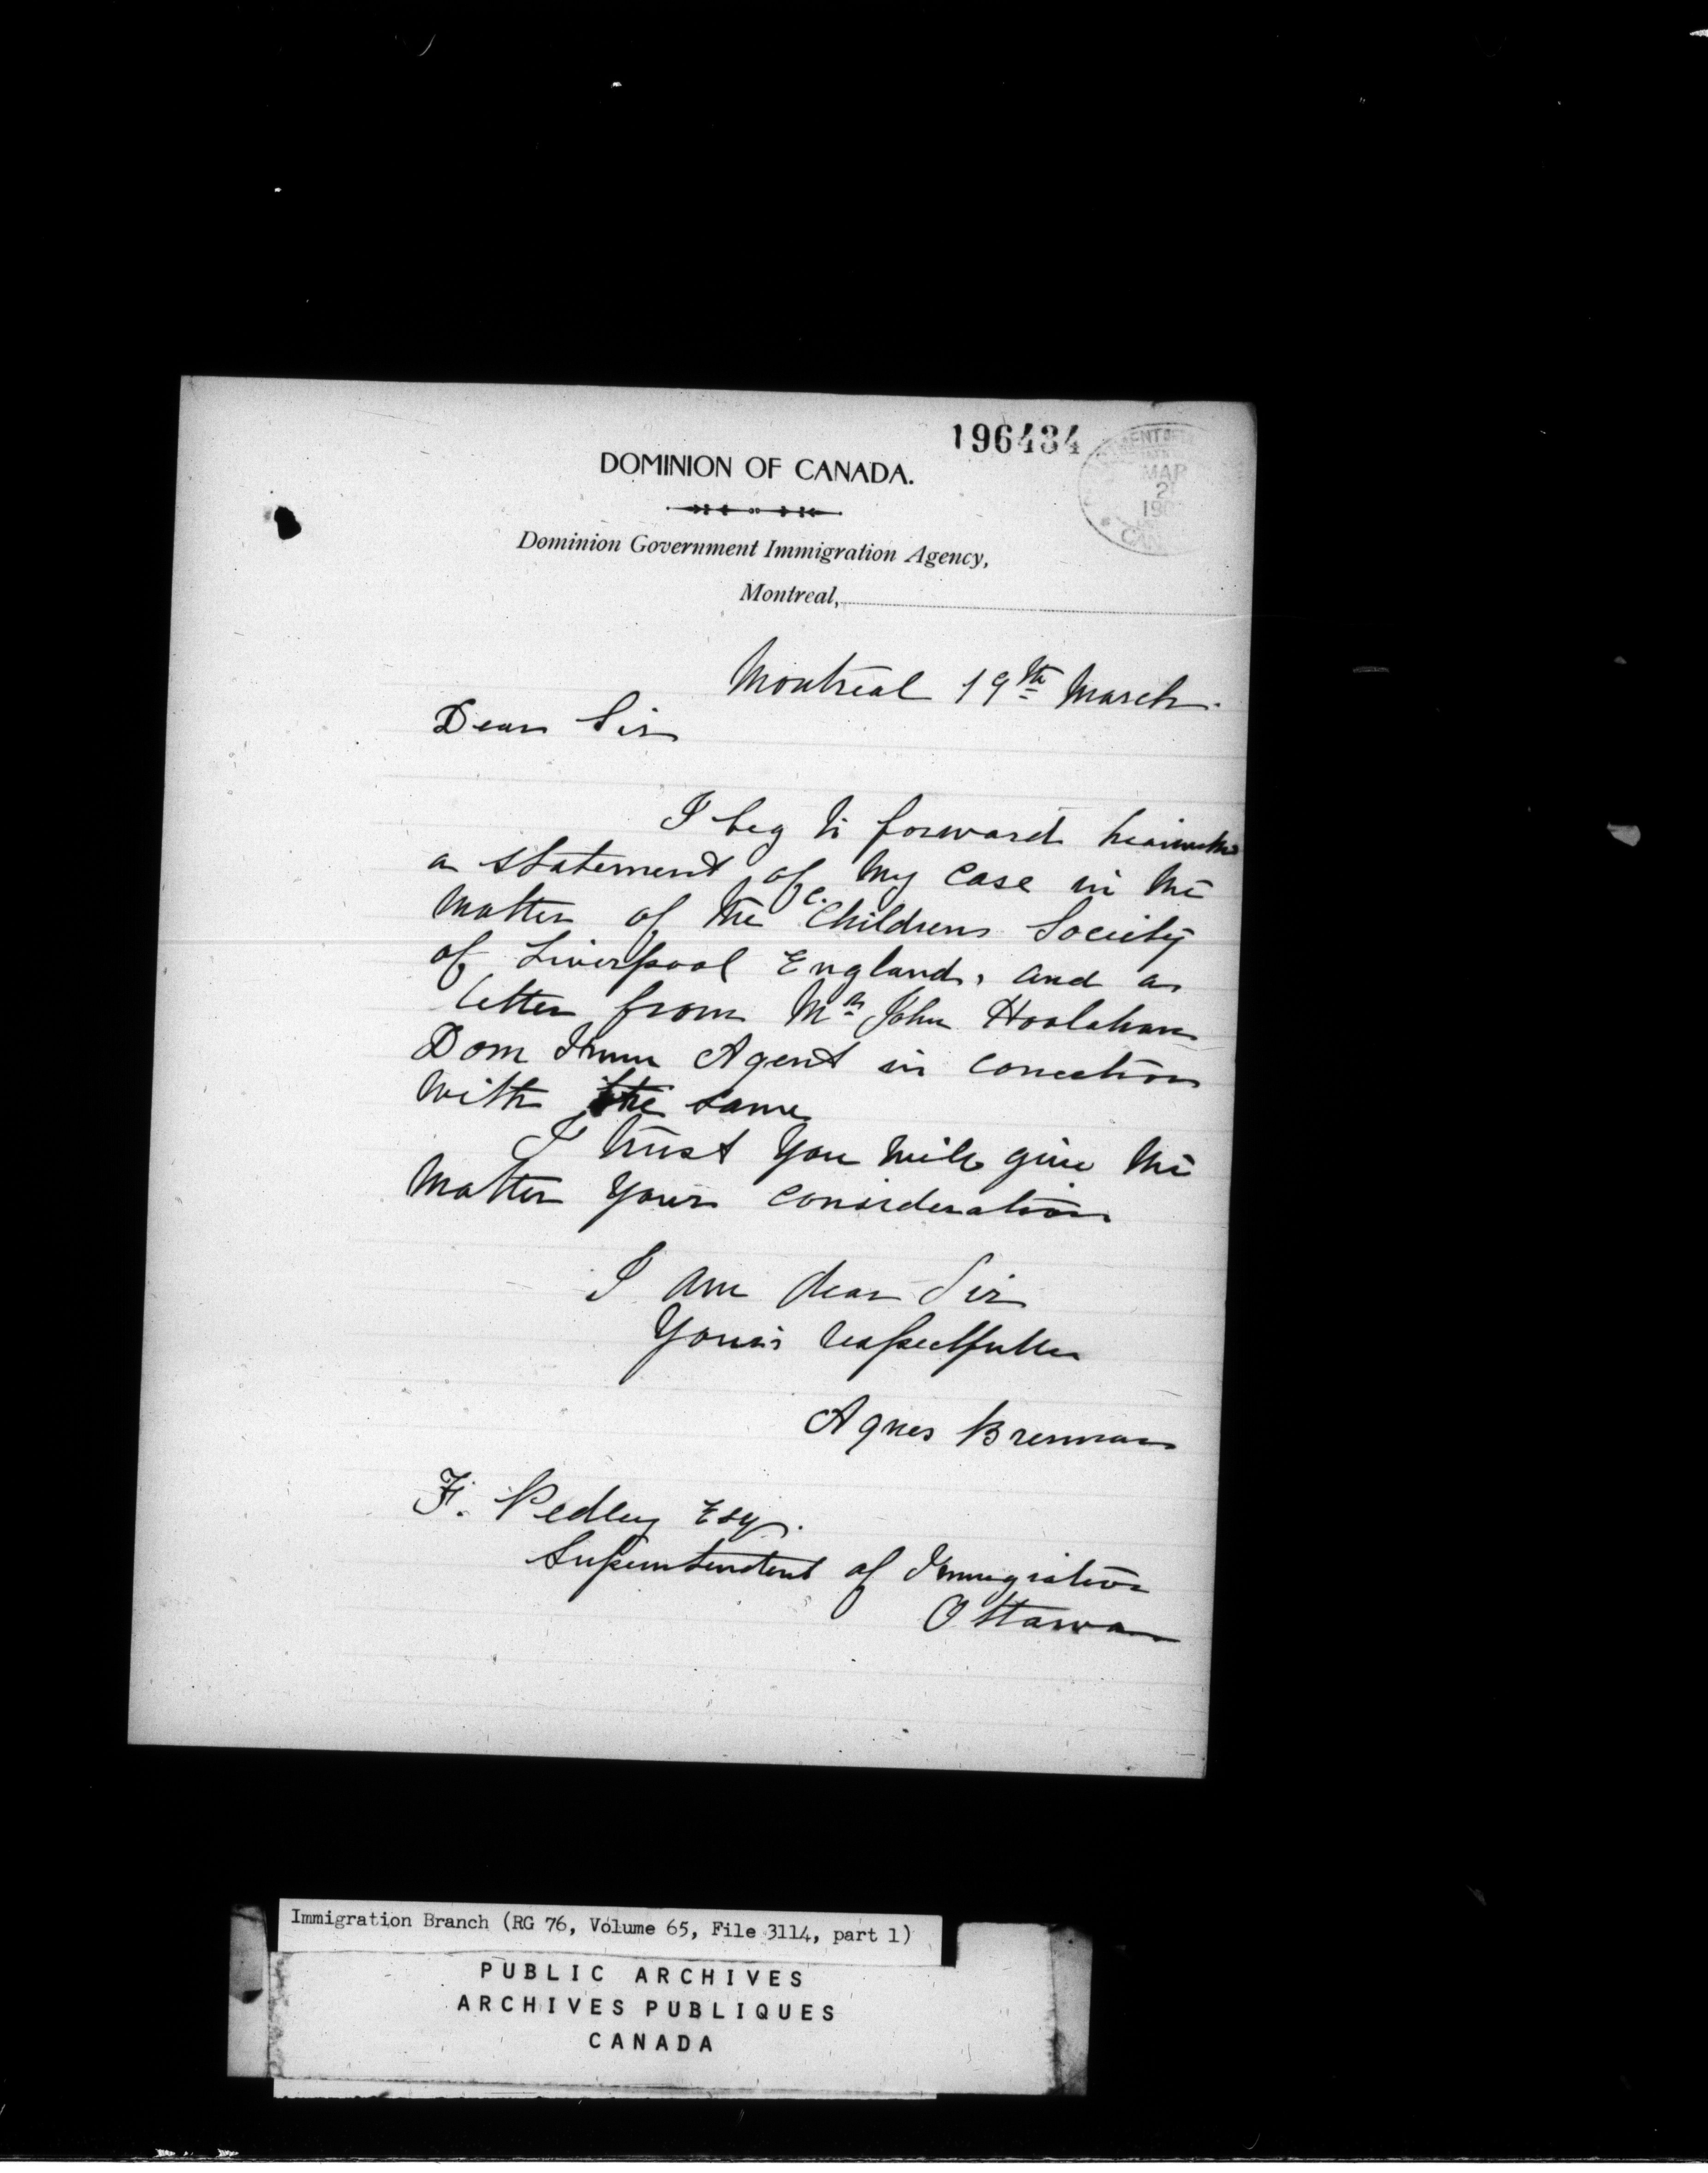 196434
DOMINION OF CANADA.
MAR
2
190
CAN
Dominion Government Immigration Agency,
Montreal,
Montreal 19th March.
Dear Sir
I beg to forward herewith
a statement of my case in the
matter of the C. Childrens Society
of Liverpool England, and a
letter from Mr John Hoolahan
Dom Imm Agent in conection
with the same
I trust you will give the
matter your consideration
I am dear Sir
Yours respectfully
Agnes Brennan
F. Pedley Esq.
Superintendent of Immigration
Ottawa
Immigration Branch (RG 76, Volume 65, File 3114, part 1)
PUBLIC ARCHIVES
ARCHIVES PUBLIQUES
CANADA